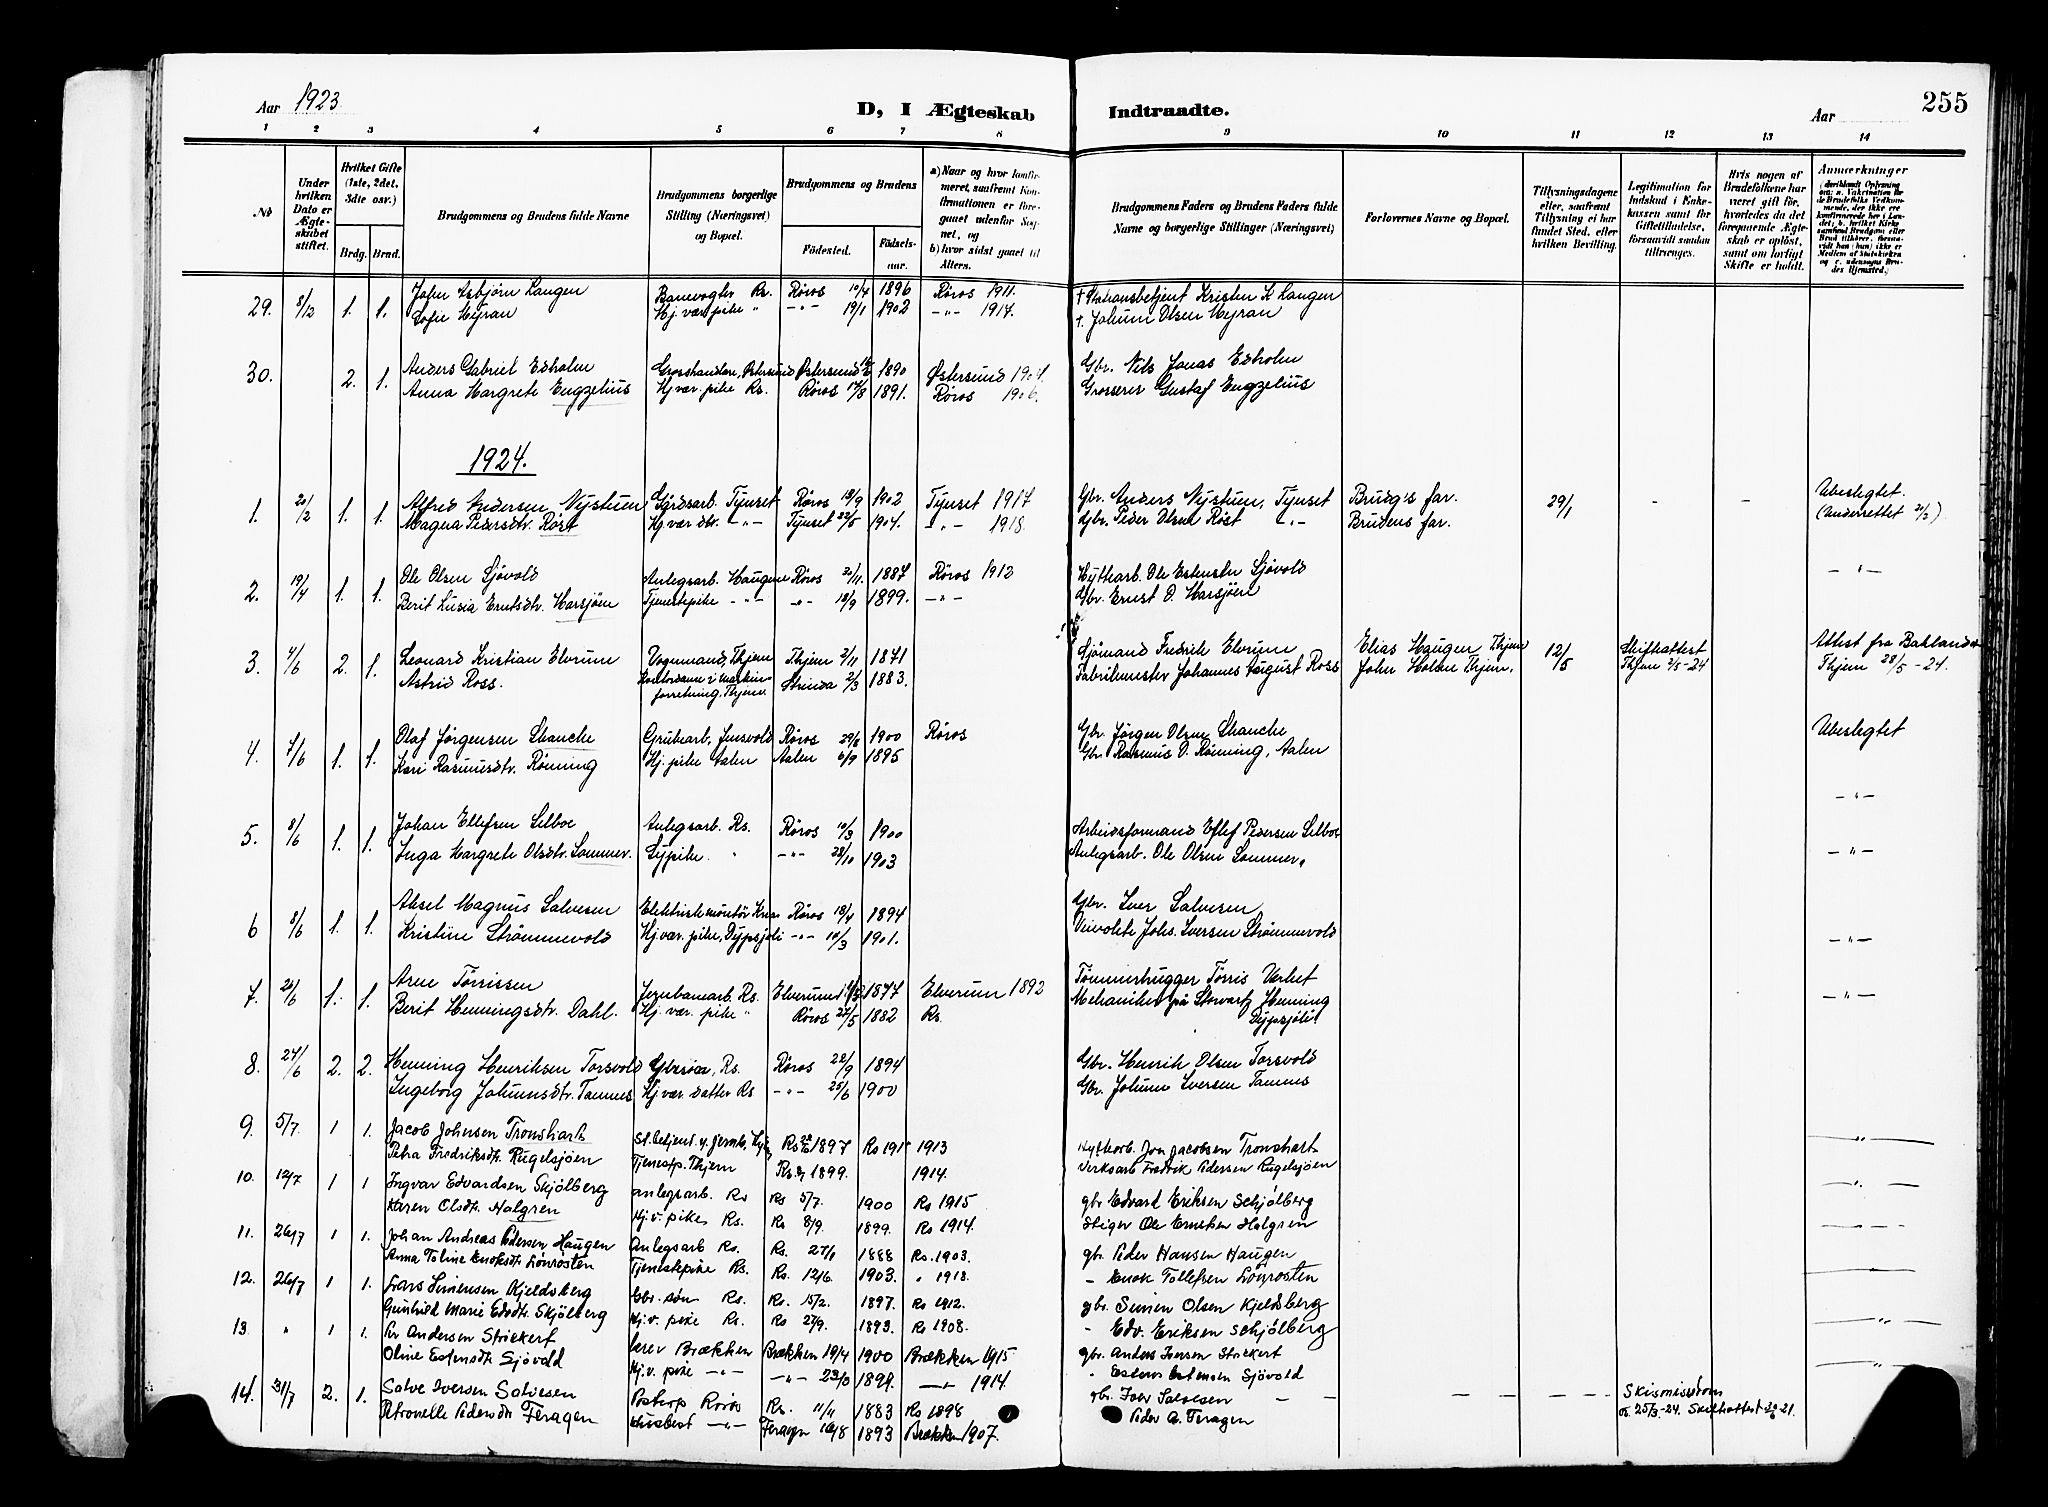 Aar 1923.
D, I Ægteskab Indtraadte.
Aar
255
1 2 3 4 5 6 7 8 9 10 11 12 13 14
No
Under hvilken Dato er Ægteskabet stiftet.
Hvilket Gifte (1ste, 2det, 3die osv.)
Brdg. Brud.
Brudgommens og Brudens fulde Navne
Brudgommens borgerlige Stilling (Næringsvei) og Bopæl.
Brudgommens og Brudens
Fødested. Fødselsaar.
a) Naar og hvor konfirmeret, saafremt Konfirmationen er foregaaet udenfor Sognet, og
b) hvor sidst gaaet til Alters.
Brudgommens Faders og Brudens Faders fulde Navne og borgerlige Stillinger (Næringsvei)
Forlovernes Navne og Bopæl.
Tillysningsdagene eller, saafremt Tillysning ei har fundet Sted, efter hvilken Bevilling.
Legitimation for Indskud i Enkekassen samt for Giftetilladelse, forsaavidt saadan tiltrænges.
Hvis nogen af Brudefolkene har været gift før, hvorledes da det foregaaende Ægteskab er opløst, samt om lovligt Skifte er holdt.
Anmerkninger
29. 8/12 1. 1. John Asbjørn Langen Banevogter Rs. Røros 10/4 1896 Røros 1911. † Stationsbetjent Kristen K Langen
Sofie Myran Hj. vær. pike " -"- 19/1 1902 -"- 1917. †. Johann Olsen Myran
30. 2. 1. Anders Gabriel Edholm Grosshandlere, Østersund Østersund 1890 Østersund 1904. Gbr. Nils Jonas Edholm
Anna Margrete Engzelius Hj. vær. pike Rs. Røros 14/8 1891. Røros 1906. Grosserer Gustaf Engzelius
1924.
1. 20/2 1. 1. Alfred Andersen Nystuen Gårdsarb. Tynset Røros 13/9 1902 Tynset 1917 Gbr. Anders Nystuen, Tynset Brudg's far. 29/1 - - Ubeslegtet.
Magna Pedersdtr. Røst Hj. vær. dtr. -"- Tynset 22/5 1904. -"- 1918. Gbr. Peder Olsen Røst -"- Brudens far. (Anderrettet 21/2)
2. 19/4 1. 1. Ole Olsen Sjøvold Anlegsarb. Haugene Røros 21/11. 1887 Røros 1912 Hyttearb. Ole Estensen Sjøvold -"-
Berit Lusia Erntsdtr. Harsjøen Tjenestepike -"- -"- 18/9 1899. -"- Gbr. Ernst O. Harsjøen
3. 4/6 2. 1. Leonard Kristian Elvrum Vognmand, Thjem Thjem 2/11 1871 Sjømand Fredrik Elvrum Elias Haugen Thjem 12/5 Skifteattest Attest fra
Astrid Ross. Kontordame i maskinforretning, Thjem. Strinda 2/3 1883. Fabrikmester Johannes August Ross John Holan Thjem. Thjem 2/5-24 Thjem 28/5-24.
4. 7/6 1. 1. Olaf Jørgensen Skanche Grubearb. Jensvold Røros 29/6 1900 Røros Gbr. Jørgen Olsen Skanche Ubeslegtet
Kari Rasmusdtr. Rønning Hj. pike Aalen Aalen 6/9 1895 Gbr. Rasmus O. Rønning, Aalen
-"-
5. 8/6 1. 1. Johan Ellefsen Selboe Anlegsarb. Rs. Røros 10/3 1900 Arbeidsformand Ellef Pedersen Selboe
Inga Margrete Olsdtr. Sommer. Sypike. " -"- 28/10 1903 Anlegsarb. Ole Olsen Sommer. -"-
6 8/6 1. 1. Aksel Magnus Salvesen Elektriskemontør Kra. Røros 18/4 1894 Gbr. Iver Salvesen
Kristine Strømmevold Hj. vær. pike, Dypsjøli -"- 14/3 1901. Veivokter Johs. Iversen Strømmevold -"-
7. 21/6 1. 1. Arne Tørrissen Jernbanearb. Rs. Elverum 1877 Elverum 1892 Tømmerhugger Tørris
Berit Henningsdtr. Dahl. Hj. vær. pike " Røros 27/5 1882 Rs. Mekaniker på Storwartz Henning Dypsjøli -"-
8. 27/6 2. 2. Henning Henriksen Torsvold Gbrsøn, Rs. Røros 28/9 1894 Gbr. Henrik Olsen Torsvold
Ingeborg Johannsdtr. Tamnes Hj. vær. datter Rs -"- 25/6 1900 Gbr. Johann Iversen Tamnes
9. 5/7. 1 1. Jacob Johnsen Tronshart St. betjent v. jernb. Rs 1897 Rs 1913 Hyttearb. Jon Jacobsen Tronshart -"-
Petra Fredriksdtr. Rugelsjøen Tjenestp. Thjem Rs. 1899. 1914. Verksarb Fredrik Pedersen Rugelsjøen
10. 12/7 1 1 Ingvar Edvardsen Skjølberg anlegsarb. Rs Rs 5/7. 1900 Rs 1915 gbr. Edvard Eriksen Schjølberg -"-
Karen Olsdtr. Holgren Hj. v. pike Rs. Rs 8/9. 1899. Rs 1914. Stiger Ole Ernstsen Holgren
11. 26/7 1 1. Johan Andreas Pedersen Haugen Anlegsarb Rs. Rs. 27/1 1888 Rs. 1903. gbr. Peder Hansen Haugen
Anna Toline Enoksdtr. Lønrosten Tjenestepike Rs. Rs. 12/6. 1903. " 1918. - Enok Tollefsen Lønrosten
12. 26/7 1 1. Lars Simensen Kjeldsberg Gbr. søn Rs. Rs. 15/2. 1897. Rs 1912. gbr. Simen Olsen Kjeldsberg
Gunhild Marie Edvdtr. Skjølberg Hj. v. pike Rs. Rs 27/9. 1893. Rs 1908. - Edv. Eriksen Schjølberg -"-
13. " 1 1. Per Andersen Strickert Brækken Brækken 19/4 1900 Brækken 1915 gbr. Anders Iversen Strickert
Oline Estensdtr Sjøvold Hj. v. pike -"- -"- 1899. -"- 1914. - Esten Estensen Sjøvold -"-
14. 31/7 2. 1. Salve Iversen Salvesen Postexp Røros Rs. 11/11 1883 Rs 1898 gbr. Iver Salvesen - - - - - Skismissedom
Petronelle Pedersdtr Feragen Husbest -"- Feragen 16/8 1893 Brækken 1907. Peder A. Feragen 25/3.-24. Skifteattest